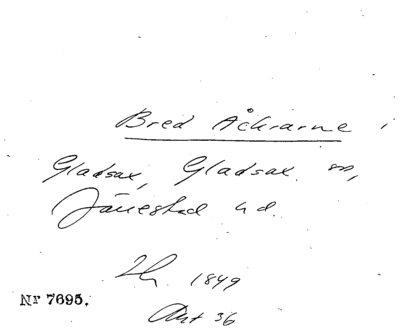 Bred Åkrarne i
Gladsax, Gladsax sn,
Järrestad hd.
1849
Akt 36
Nr 7695.